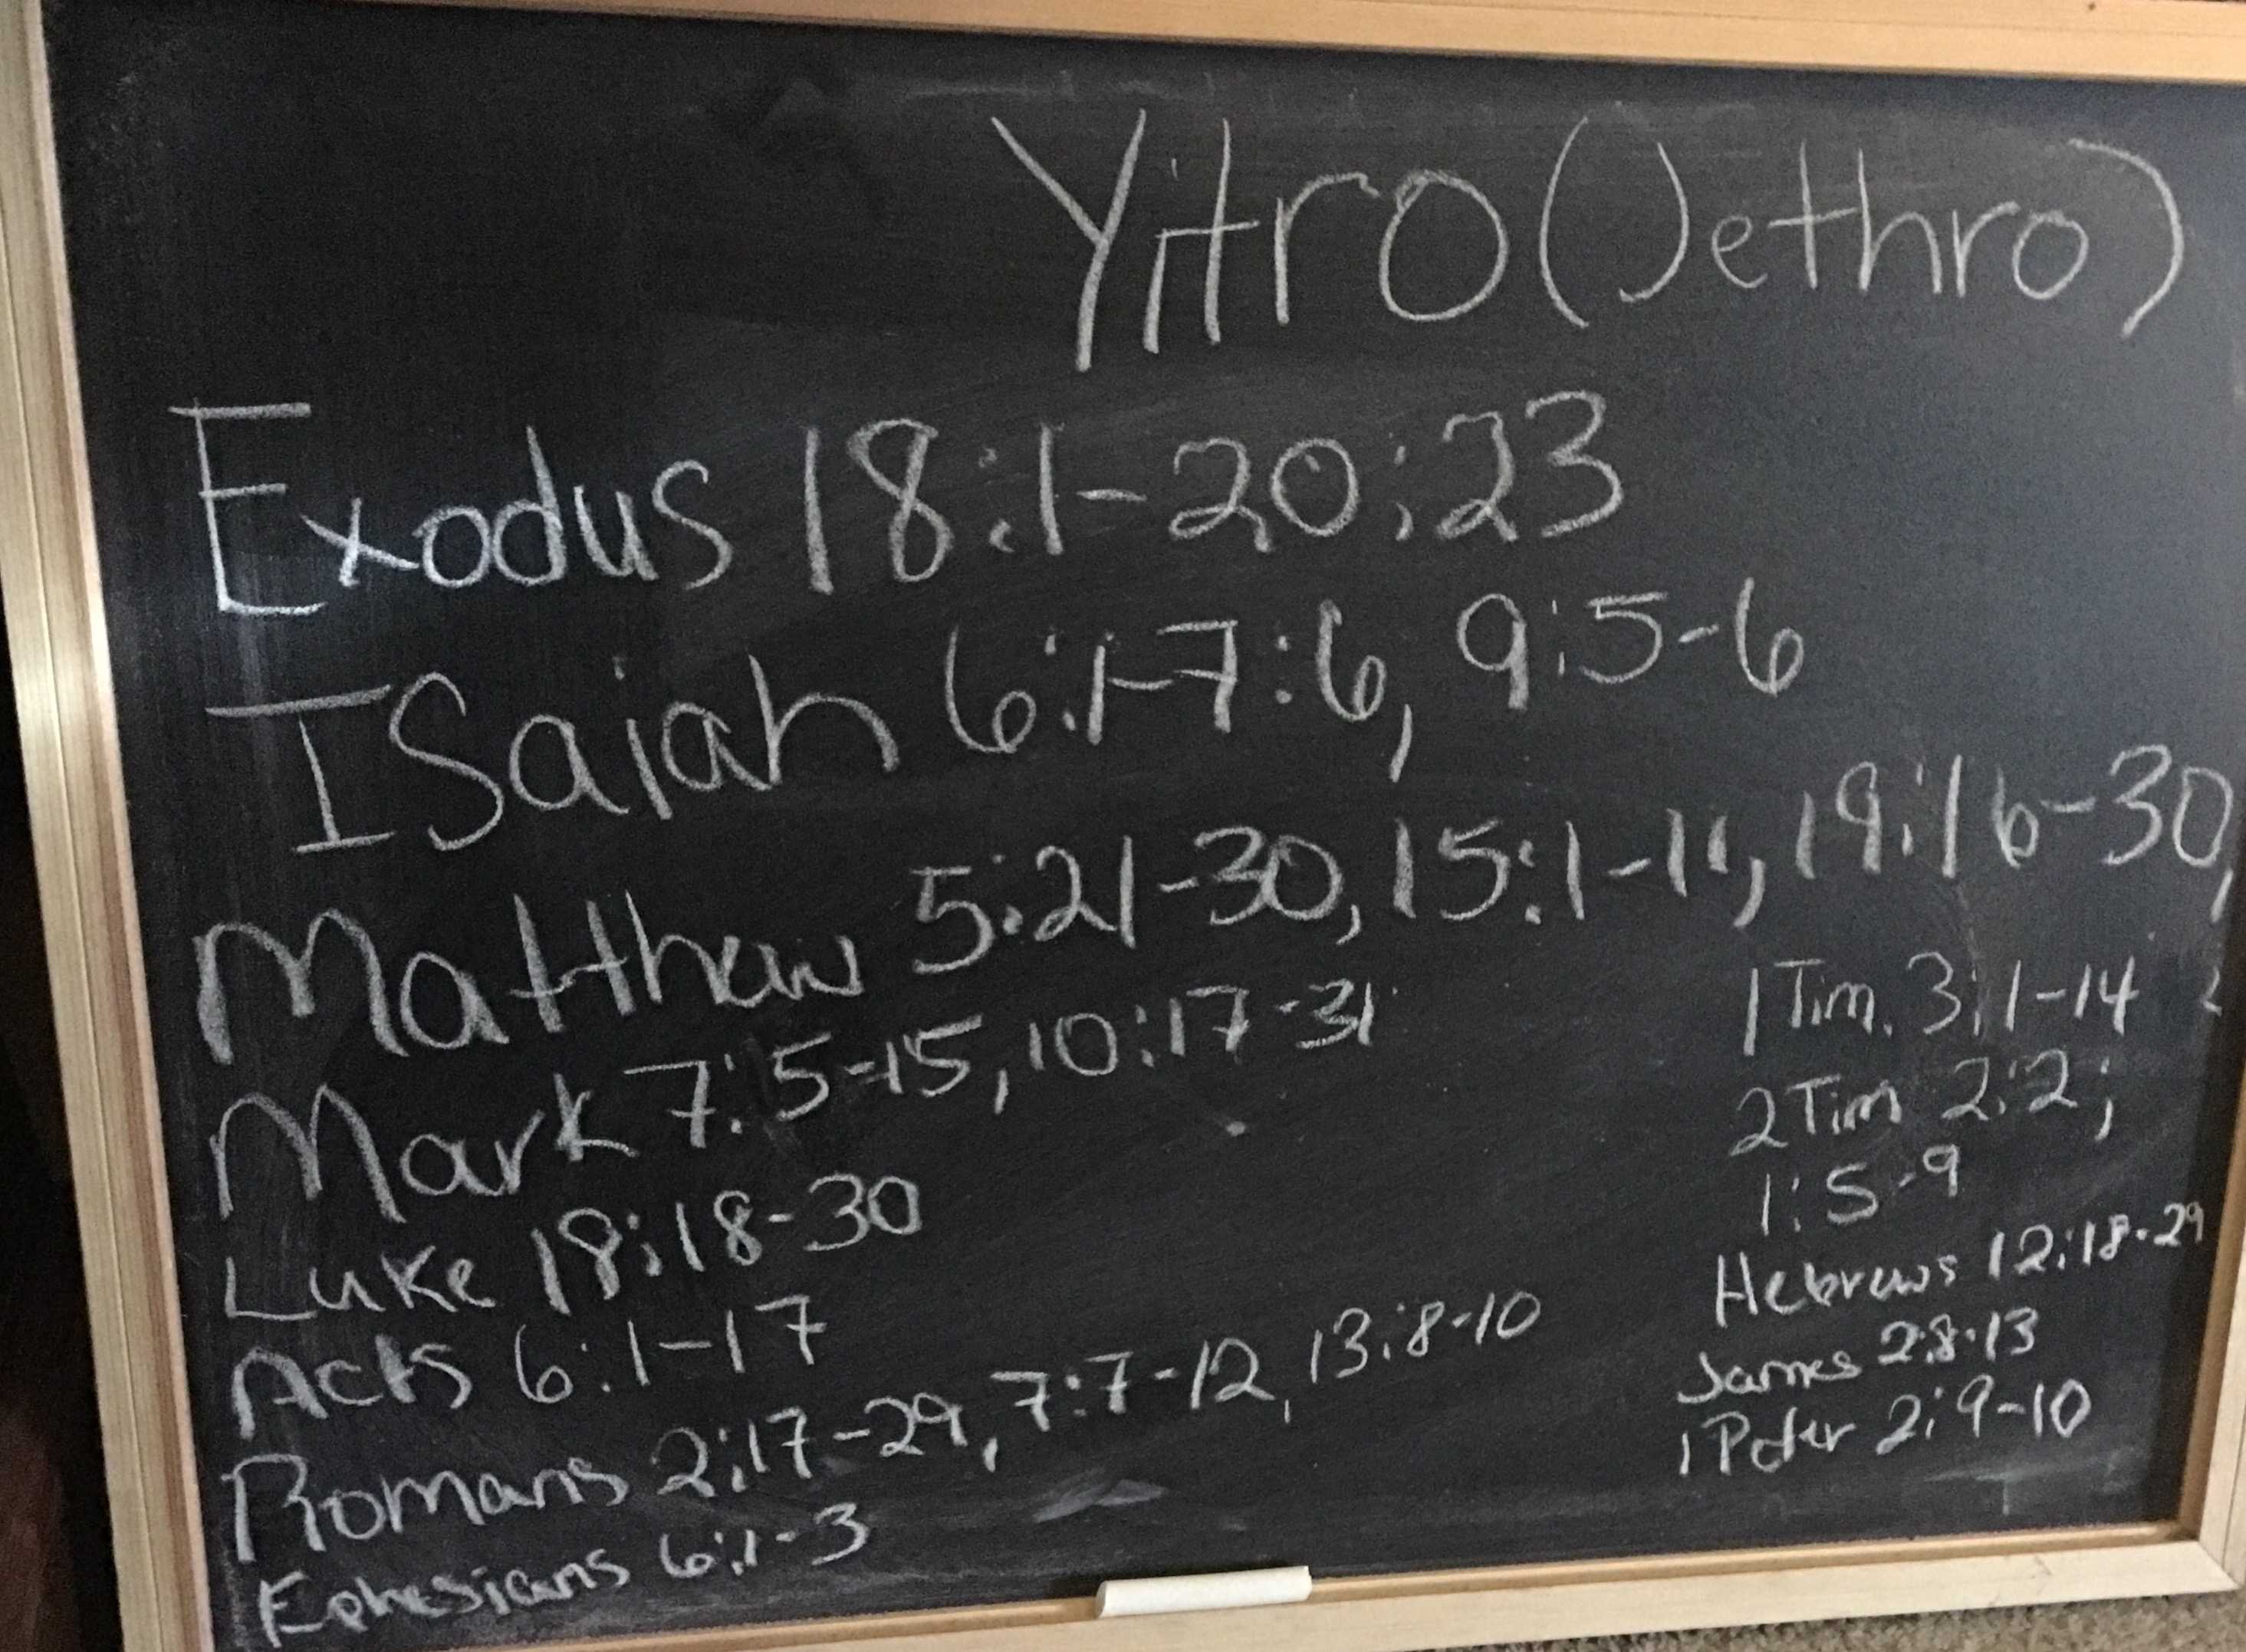 Yitro (Jethro)
Exodus 18:1-20:23
ISaiah 6:1-7:6, 9:5-6
Matthew 5:21-30, 15:1-11, 19:16-30,
Mark 7:5-15, 10:17-31
Luke 18:18-30
Acts 6:1-17
Romans 2:17-29, 7:7-12, 13:8-10
Ephesians 6:1-3
1 Tim. 3:1-14
2 Tim 2:2;
1:5-9
Hebrews 12:18-29
James 2:8-13
1 Peter 2:9-10